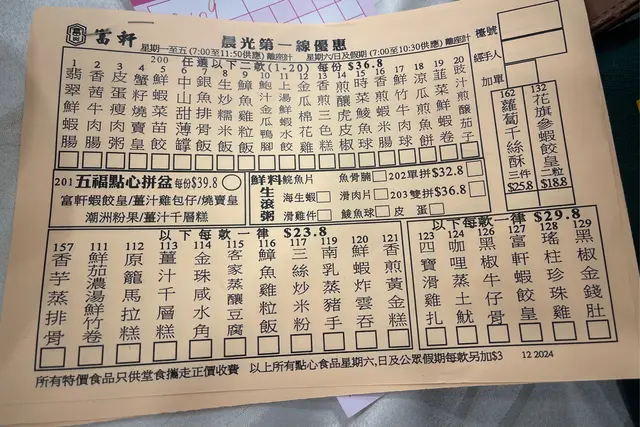 富軒
晨光第一線優惠
星期一至五(7:00至11:50供應) 離座計 星期六/日及假期(7:00至10:30供應) 離座計
200 任選以下二款(1-20) 每份 $36.8
1 翡翠鮮蝦腸
2 香茜牛肉腸
3 皮蛋瘦肉粥
5 鮮蝦菜苗餃
6 中山甜薄罉
8 生炒糯米飯
9 鱆魚雞粒飯
14 煎釀虎皮椒
15 時菜鯪魚球
20 豉汁煎釀茄子
檯號
經手人
加單
162 蘿蔔千絲酥 三件 $25.8
132 花旗參蝦餃皇 二粒 $18.8
201 五福點心拼盆 每份$39.8
富軒蝦餃皇/薑汁雞包仔/燒賣皇
潮洲粉果/薑汁千層糕
鮮料生滾粥
鯇魚片 魚骨腩 202單拼$32.8
海生蝦 滑肉片 203雙拼$36.8
滑雞件 鯪魚球 皮蛋
以下每款一律 $23.8
157 香芋蒸排骨
111 鮮茄濃湯鮮竹卷
112 原籠馬拉糕
113 薑汁千層糕
114 金珠咸水角
115 客家蒸釀豆腐
116 鱆魚雞粒飯
117 三絲炒米粉
119 南乳豬手
120 鮮蝦炸雲吞
121 香煎黃金糕
以下每款一律 $29.8
123 四寶滑雞扎
124 咖哩蒸土魷
126 黑椒牛仔骨
127 富軒蝦餃皇
128 瑤柱珍珠雞
129 黑椒金錢肚
所有特價食品只供堂食攜走正價收費 以上所有點心星期六,日及公眾假期每款另加$3 12 2024